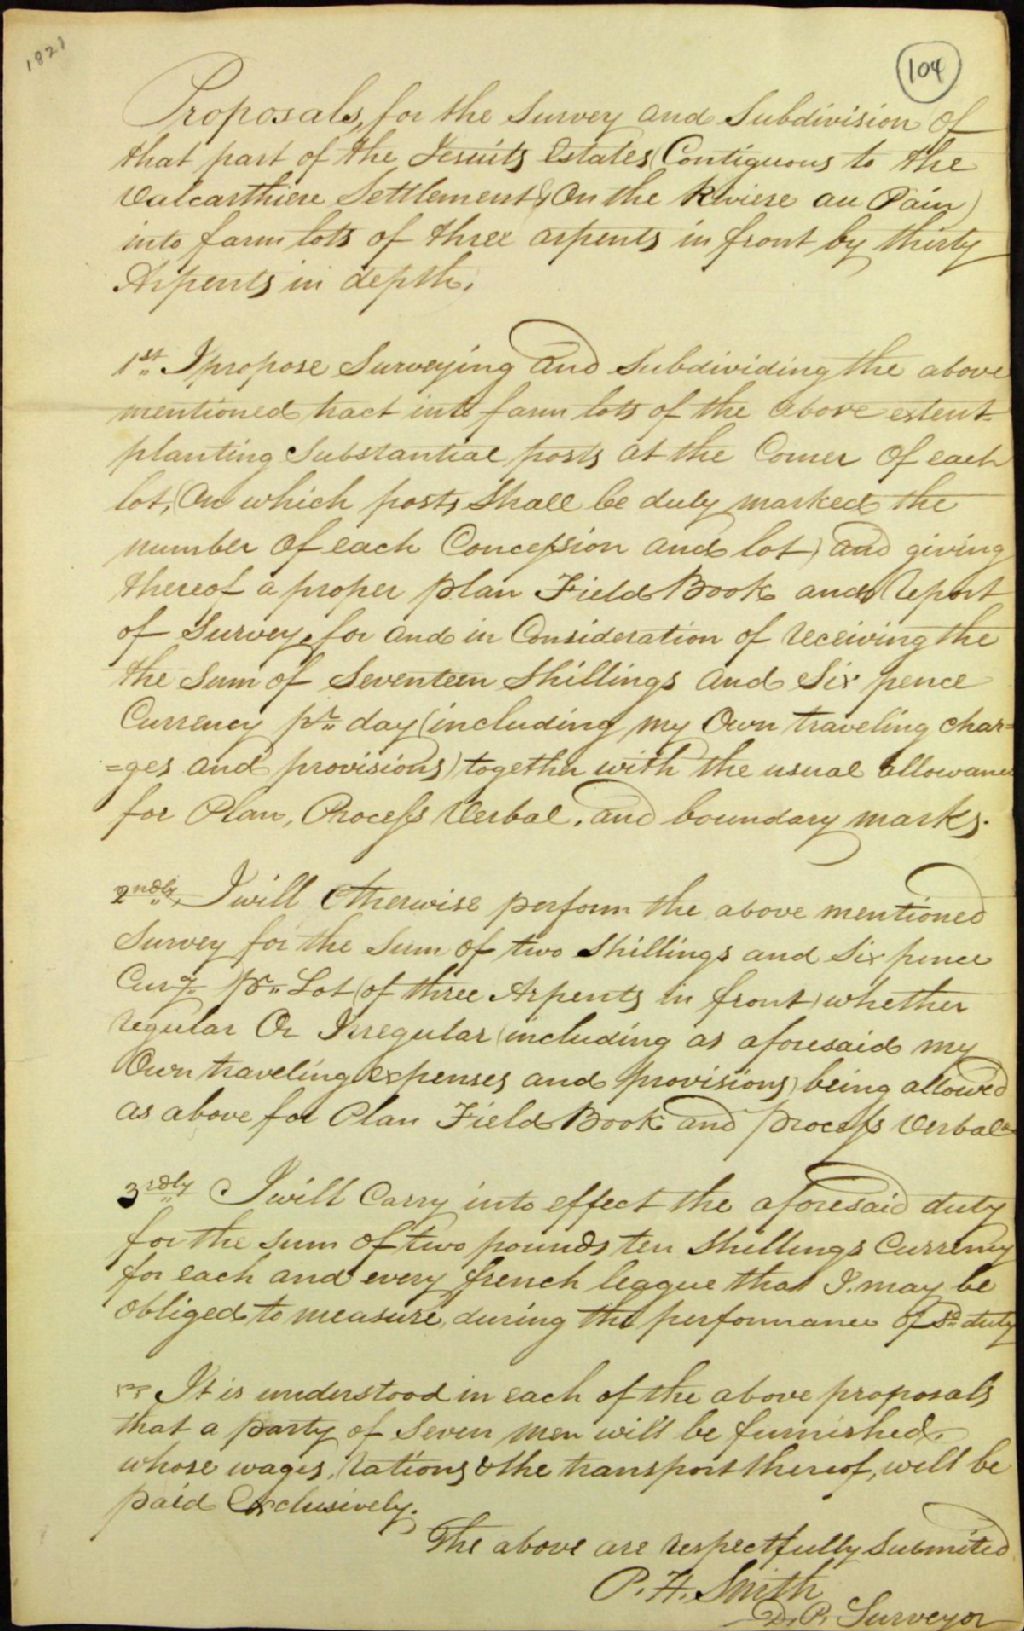 1828
104
Proposals, for the Survey and Subdivision of
that part of the Jesuits Estates (Contiguous to the
Valcarthiere Settlement & On the Riviere au Pain)
into farm lots of three arpents in front by thirty
Arpents in depth.
1st. I propose Surveying and Subdividing the above
mentioned tract into farm lots of the above extent
planting Substantial posts at the Corner Of each
lot, (On which posts Shall be duly marked the
number Of each Concession and lot) and giving
thereof a proper plan Field Book and Report
of Survey, for and in Consideration of receiving the
the Sum of Seventeen Shillings and Six pence
Currency pr. day (including my Own traveling char=
=ges and provisions) together with the usual allowance
for Plan, Process Verbal, and boundary marks.
2ndly. I will Otherwise perform the above mentioned
Survey for the Sum of two Shillings and Six pence
Curcy. pr. Lot (of three Arpents in front) whether
regular Or Irregular (including as aforesaid my
Own traveling expenses and provisions) being allowed
as above for Plan Field Book and process Verbal
3rdly I will Carry into effect the aforesaid duty
for the Sum Of two pounds ten Shillings Currency
for each and every french league that I may be
obliged to measure, during the performance Of Sd. duty
It is understood in each of the above proposals
that a party of Seven men will be furnished
whose wages, rations & the transport thereof, will be
paid Exclusively.
The above are respectfully Submited
P. H. Smith
D. P. Surveyor